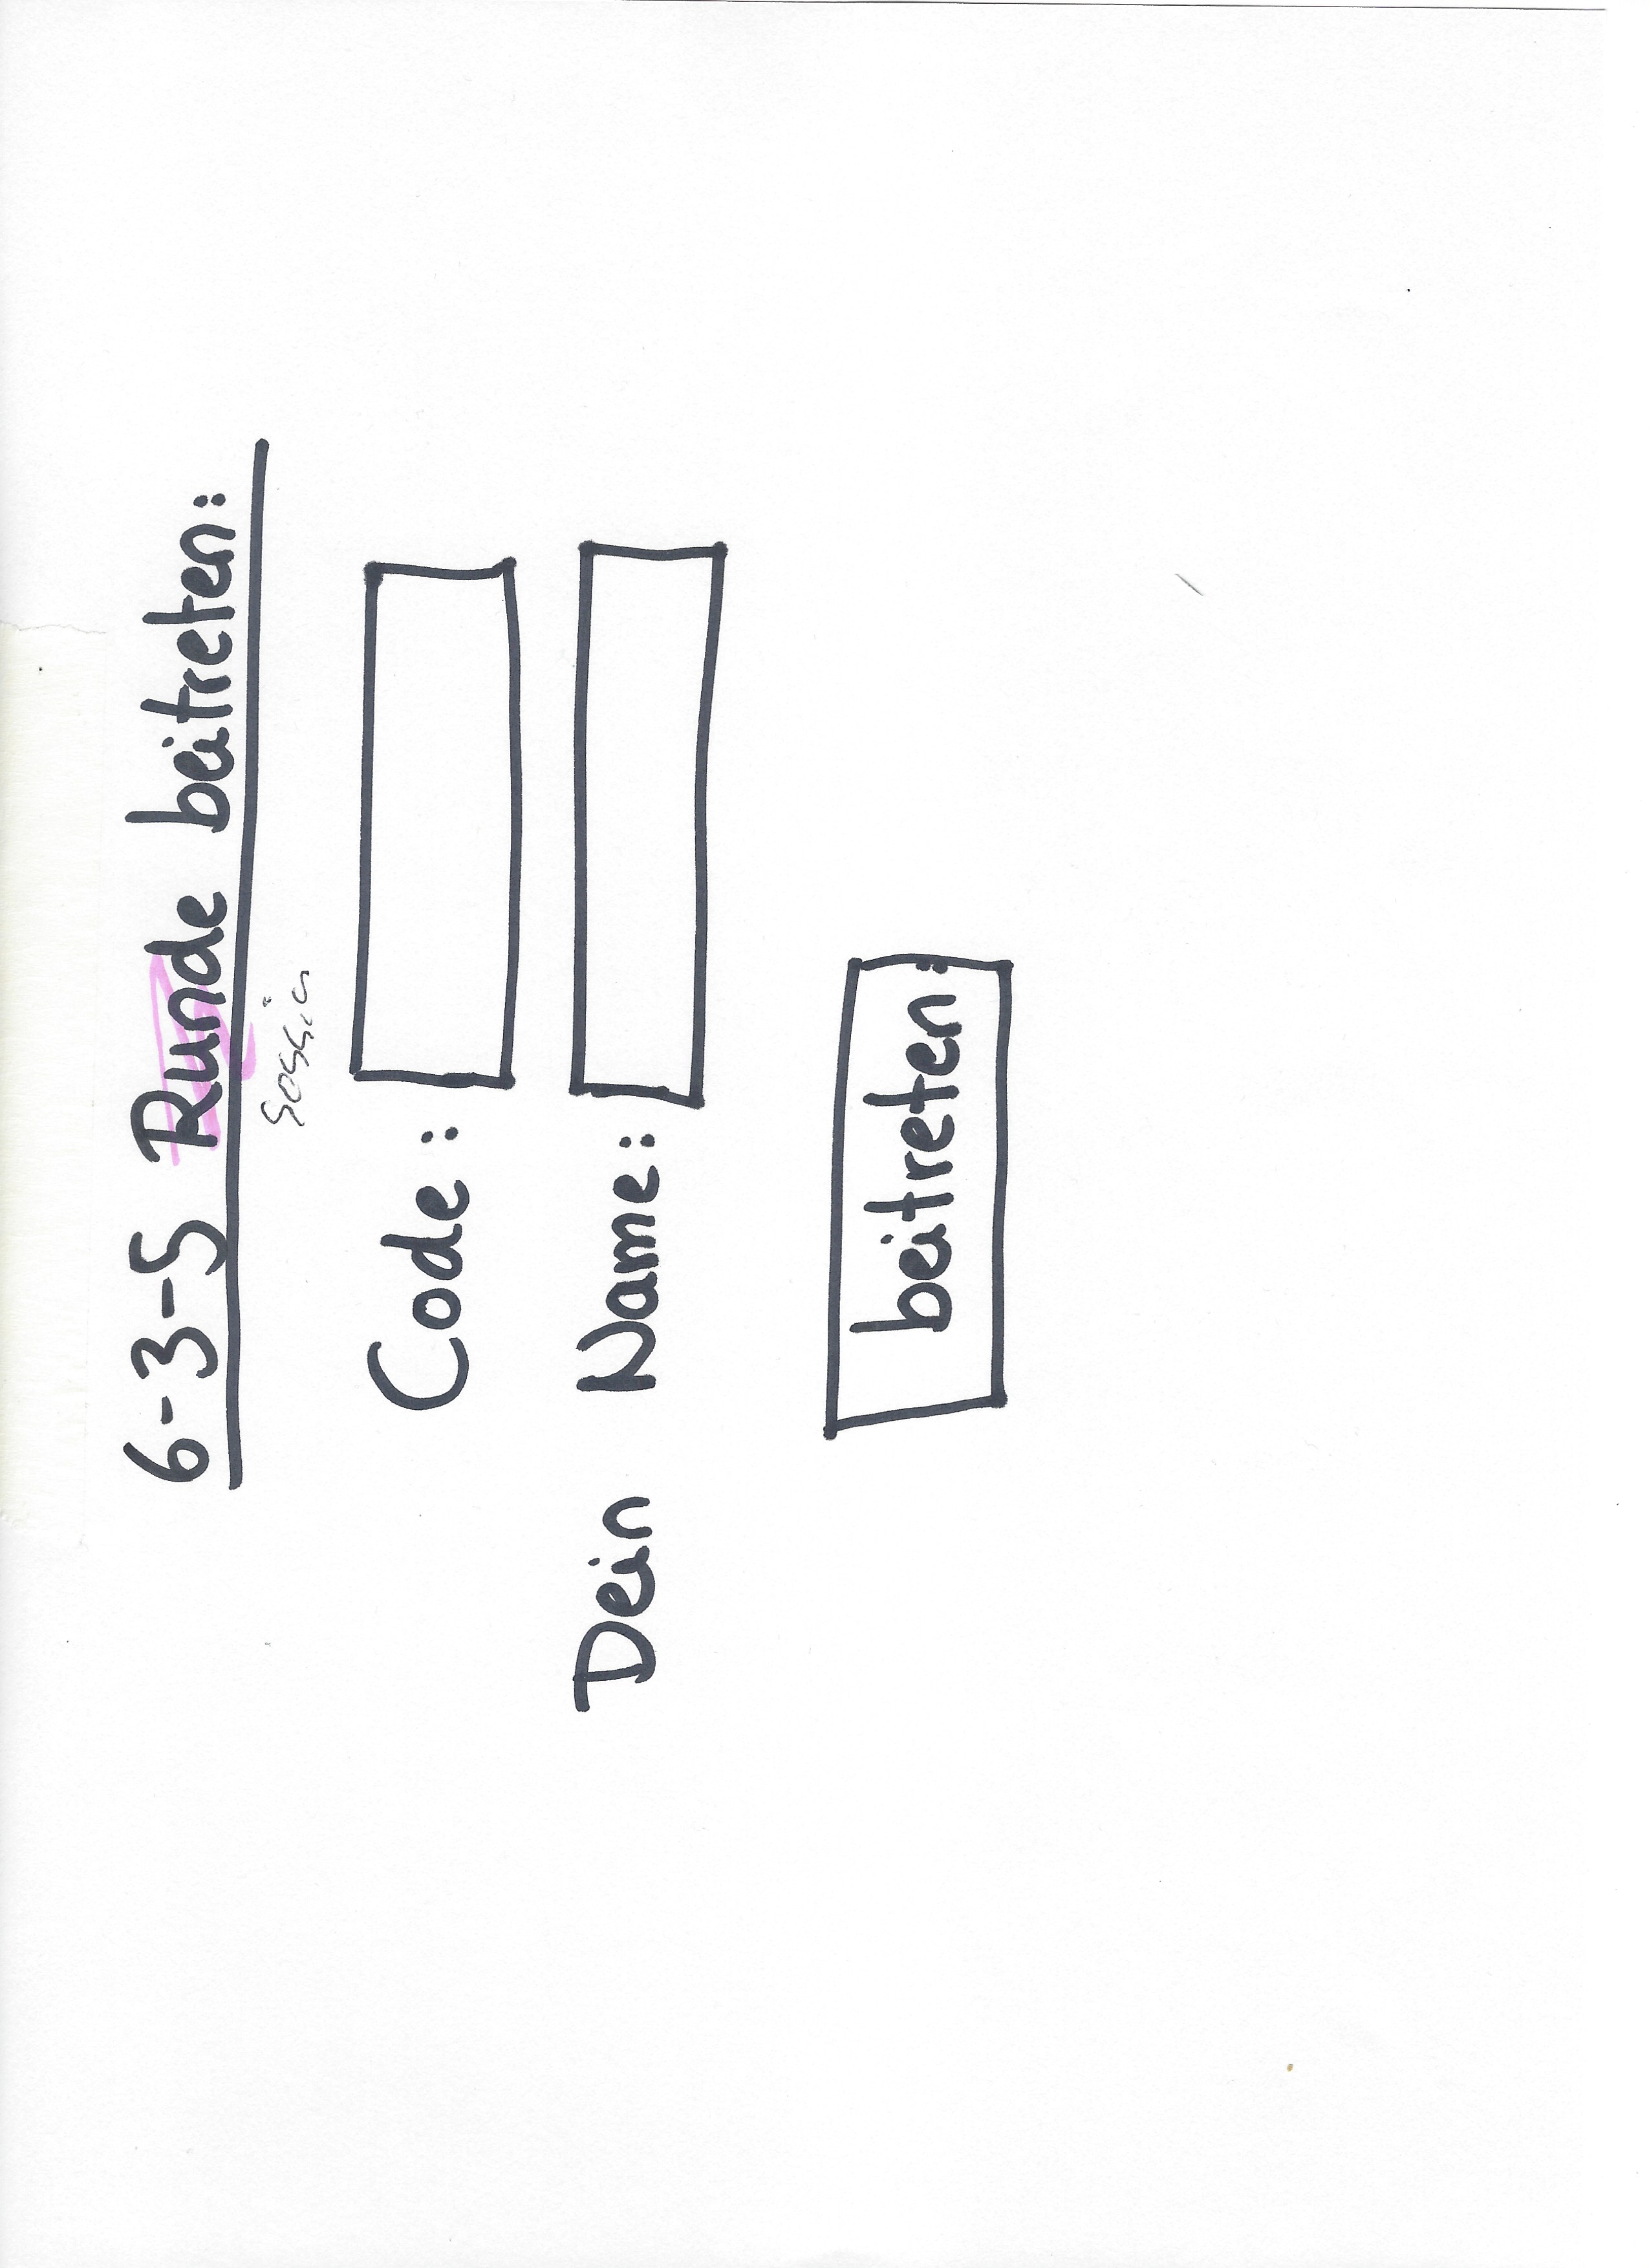 6-3-5 Runde beitreten:
Session
Code:
Dein Name:
beitreten: